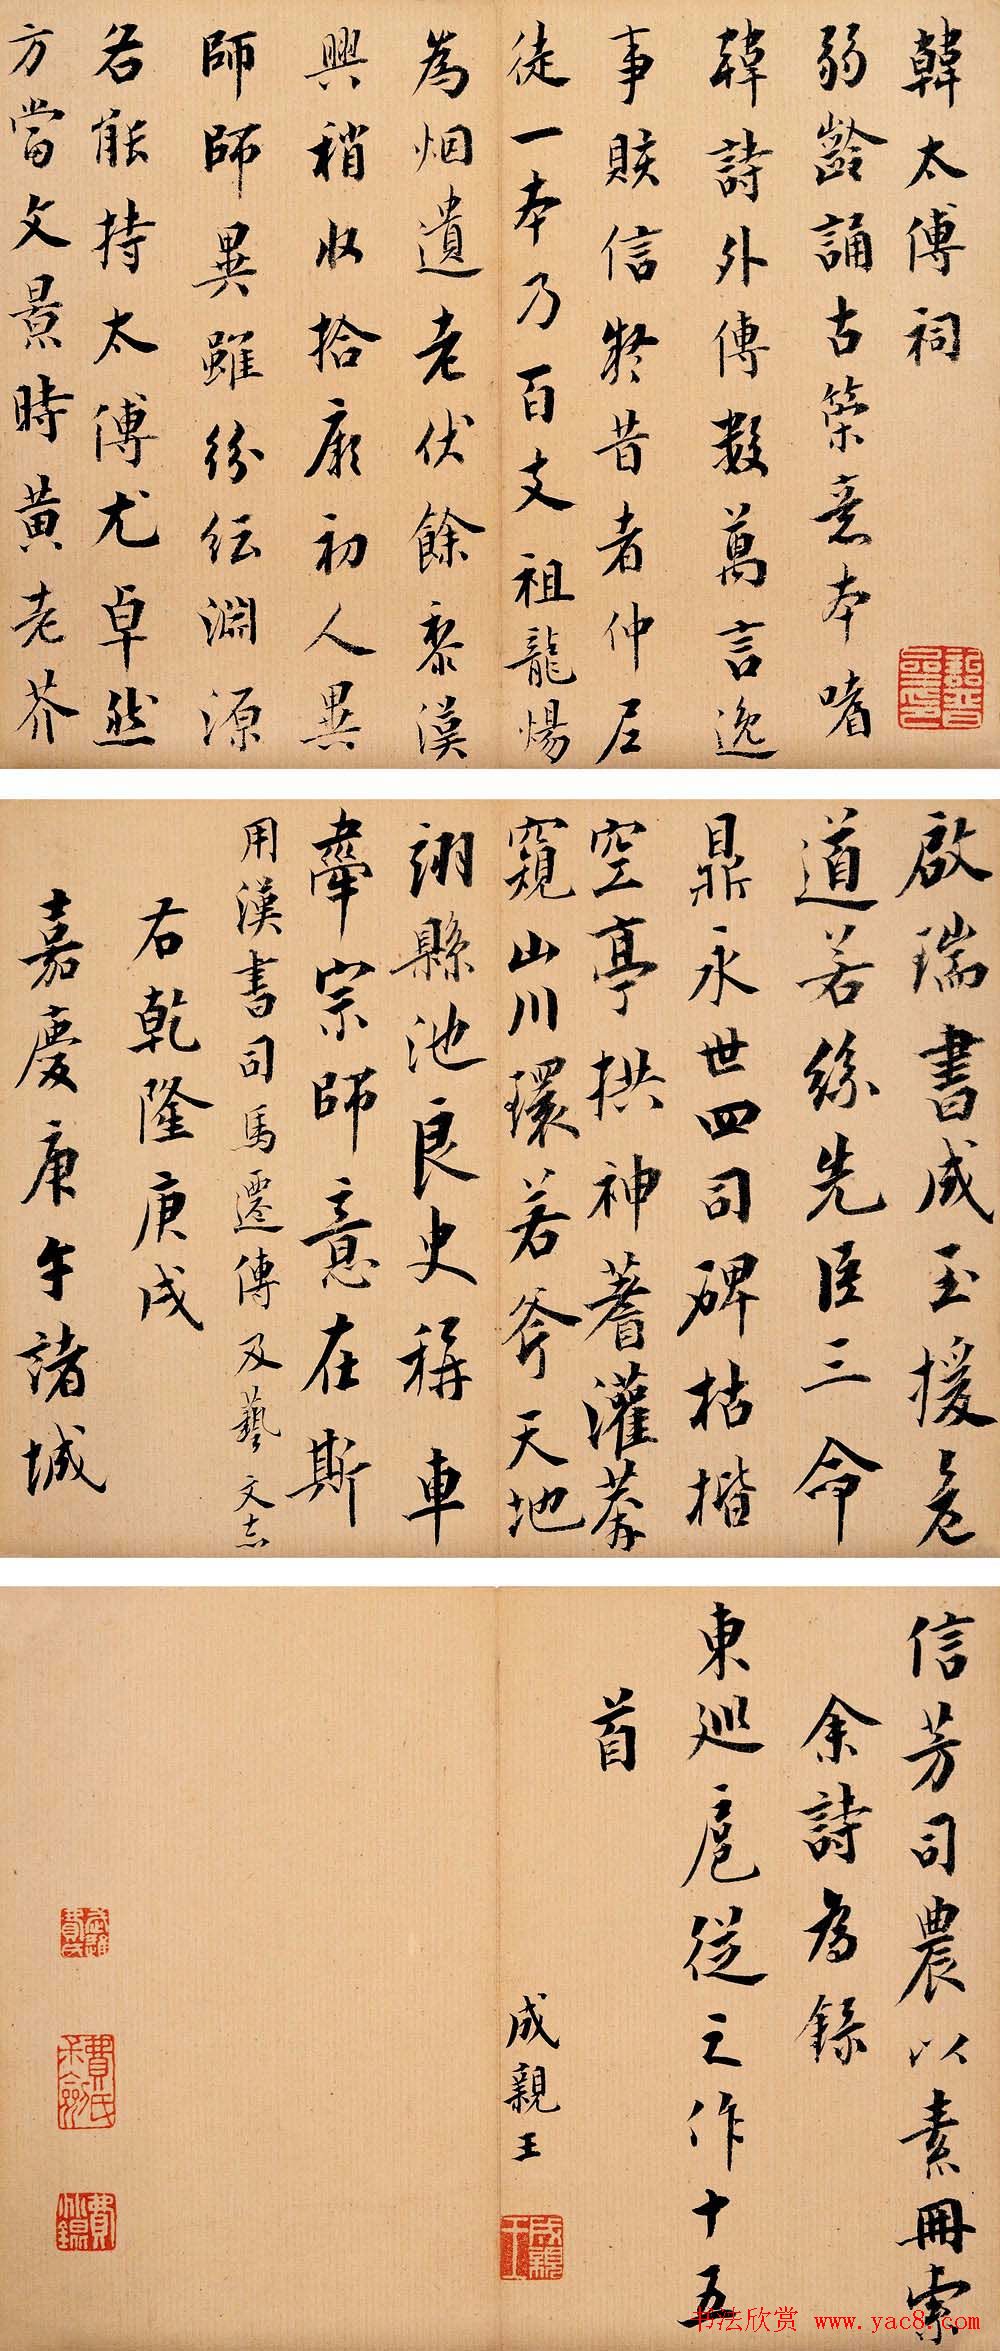 韓太傅祠
弱齡誦古策意本嗜
韓詩外傳數萬言逸
事賅信終昔者仲尼
徒一本乃百支祖龍煬
為烟遺老伏餘黎漢
興稍收拾厥初人異
師師異雖紛紜淵源
名能持太傅尤卓然
方當文景時黃老芥
啟瑞書咸玉援危
道若絲先臣三命
鼎永世四司碑枯楷
空亭拱神蓍灌莽
窺山川環若斧天地
詡縣池良史稱車
牽宗師意在斯
用漢書司馬遷傳及藝文志
右乾隆庚戌
嘉慶庚午諸城
信芳司農以素冊索
余詩為錄
東巡扈從之作十五
首
成親王
成親王
书法欣赏 www.yac8.com